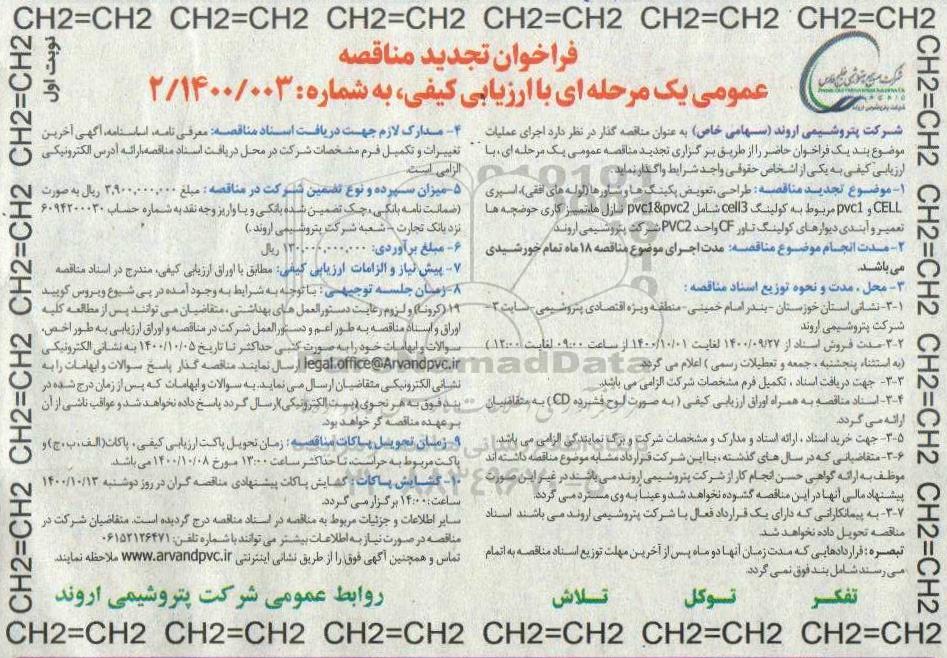 CH2=CH2 CH2=CH2 CH2=CH2 CH2=CH2 CH2=CH2 CH2=CH2
نوبت اول
فراخوان تجدید مناقصه
عمومی یک مرحله ای با ارزیابی کیفی، به شماره: ۲/۱۴۰۰/۰۰۳
شرکت پتروشیمی اروند
شرکت پتروشیمی اروند (سهامی خاص) به عنوان مناقصه گذار در نظر دارد اجرای عملیات
موضوع بند یک فراخوان حاضر را از طریق برگزاری تجدید مناقصه عمومی یک مرحله ای، با
ارزیابی کیفی به یکی از اشخاص حقوقی واجد شرایط واگذار نماید.
۱- موضوع تجدید مناقصه: طراحی، تعویض پکینگ ها و ساورها (لوله های افقی)، اسپری
CELL و pvc1 مربوط به کولینگ cell3 شامل pvc1&pvc2 نازل ها، تمیز کاری حوضچه ها
تعمیر و آبندی دیوارهای کولینگ تاور CF واحد PVC2 شرکت پتروشیمی اروند
۲- مدت انجام موضوع مناقصه: مدت اجرای موضوع مناقصه ۱۸ ماه تمام خورشیدی
می باشد.
۳- محل، مدت و نحوه توزیع اسناد مناقصه:
۳-۱- نشانی استان خوزستان - بندر امام خمینی - منطقه ویژه اقتصادی پتروشیمی - سایت ۳-
شرکت پتروشیمی اروند
۳-۲- مدت فروش اسناد از ۱۴۰۰/۰۹/۲۷ لغایت ۱۴۰۰/۱۰/۰۱ از ساعت ۰۹:۰۰ لغایت ۱۲:۰۰
(به استثناء پنجشنبه، جمعه و تعطیلات رسمی) اعلام می گردد.
۳-۳- جهت دریافت اسناد، تکمیل فرم مشخصات شرکت الزامی می باشد.
۳-۴- اسناد مناقصه به همراه اوراق ارزیابی کیفی (به صورت لوح فشرده CD) به متقاضیان
ارائه می گردد.
۳-۵- جهت خرید اسناد، ارائه اسناد و مدارک و مشخصات شرکت و برگ نمایندگی الزامی می باشد.
۳-۶- متقاضیانی که در سال های گذشته، با این شرکت قرارداد مشابه موضوع مناقصه داشته اند
موظف به ارائه گواهی حسن انجام کار از شرکت پتروشیمی اروند می باشند در غیر این صورت
پیشنهاد مالی آنها در این مناقصه گشوده نخواهد شد و عیناً به وی مسترد می گردد.
۳-۷- به پیمانکارانی که دارای یک قرارداد فعال با شرکت پتروشیمی اروند می باشند اسناد
مناقصه تحویل داده نخواهد شد.
تبصره: قراردادهایی که مدت زمان آنها دو ماه پس از آخرین مهلت توزیع اسناد مناقصه به اتمام
می رسند شامل بند فوق نمی گردد.
۴- مدارک لازم جهت دریافت اسناد مناقصه: معرفی نامه، اساسنامه، آگهی آخرین
تغییرات و تکمیل فرم مشخصات شرکت در محل دریافت اسناد مناقصه، ارائه آدرس الکترونیکی
الزامی است.
۵- میزان سپرده و نوع تضمین شرکت در مناقصه: مبلغ ۳,۹۰۰,۰۰۰,۰۰۰ ریال به صورت
(ضمانت نامه بانکی، چک تضمین شده بانکی و یا واریز وجه نقد به شماره حساب ۶۰۹۴۲۰۰۰۳۰
نزد بانک تجارت - شعبه شرکت پتروشیمی اروند.)
۶- مبلغ برآوردی: ۱۳۰,۰۰۰,۰۰۰,۰۰۰ ریال
۷- پیش نیاز و الزامات ارزیابی کیفی: مطابق با اوراق ارزیابی کیفی، مندرج در اسناد مناقصه
۸- زمان جلسه توجیهی: با توجه به شرایط به وجود آمده در پی شیوع ویروس کووید
۱۹ (کرونا) و لزوم رعایت دستورالعمل های بهداشتی، متقاضیان می توانند پس از مطالعه کلیه
اوراق و اسناد مناقصه به طور اعم و دستورالعمل شرکت در مناقصه و اوراق ارزیابی به طور اخص،
سوالات و ابهامات خود را به صورت کتبی حداکثر تا تاریخ ۱۴۰۰/۱۰/۰۵ به نشانی الکترونیکی
legal.office@Arvandpvc.ir ارسال نمایند. مناقصه گذار پاسخ سوالات و ابهامات را به
نشانی الکترونیکی متقاضیان ارسال می نماید. به سوالات و ابهامات که پس از زمان درج شده در
بند فوق به هر نحوی (پست الکترونیکی) ارسال گردد پاسخ داده نخواهد شد و عواقب ناشی از آن
بر عهده مناقصه گر خواهد بود.
۹- زمان تحویل پاکات مناقصه: زمان تحویل پاکت ارزیابی کیفی، پاکات (الف، ب، ج) و
پاکت مربوط به حراست، تا حداکثر ساعت ۱۳:۰۰ مورخ ۱۴۰۰/۱۰/۰۸ می باشد.
۱۰- گشایش پاکات: گشایش پاکات پیشنهادی مناقصه گران در روز دوشنبه ۱۴۰۰/۱۰/۱۳
ساعت: ۱۴:۰۰ برگزار می گردد.
سایر اطلاعات و جزئیات مربوط به مناقصه در اسناد مناقصه درج گردیده است. متقاضیان شرکت در
مناقصه در صورت نیاز به اطلاعات بیشتر می توانند با شماره تلفن: ۰۶۱۵۲۱۲۶۴۷۱
تماس و همچنین آگهی فوق را از طریق نشانی اینترنتی www.arvandpvc.ir ملاحظه نمایند.
تفکر توکل تلاش
روابط عمومی شرکت پتروشیمی اروند
CH2=CH2 CH2=CH2 CH2=CH2 CH2=CH2 CH2=CH2 CH2=CH2
CH2=CH2 CH2=CH2 CH2=CH2 CH2=CH2
CH2=CH2 CH2=CH2 CH2=CH2 CH2=CH2